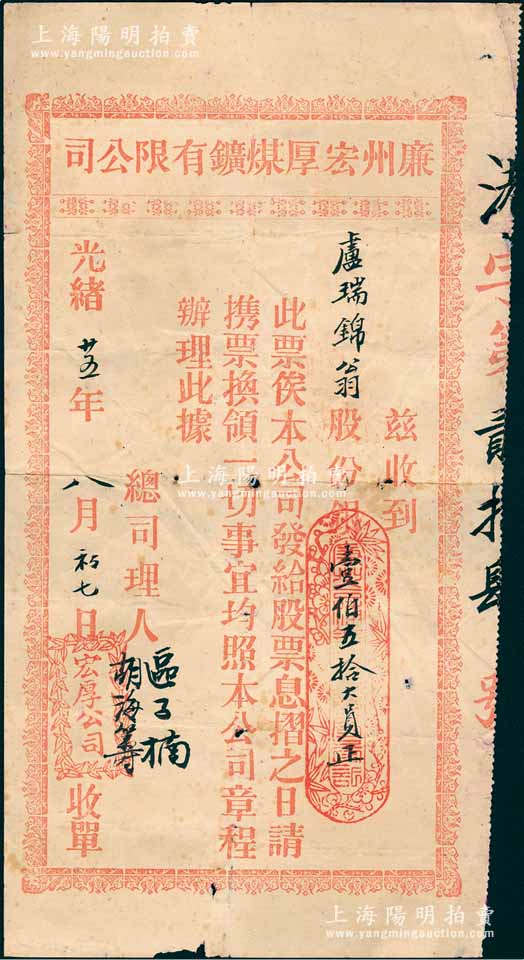 上海陽明拍賣
www.yangmingauction.com
廉州宏厚煤鑛有限公司
兹收到
盧瑞錦翁股份銀壹佰五拾大員正
此票俟本公司發給股票息摺之日請
携票換領一切事宜均照本公司章程
辦理此據
總司理人
區子楠
胡海籌
光緒廿五年八月初七日
收單
宏厚公司
字第貳拾肆號
上海陽明拍賣
www.yangmingauction.com
上海陽明拍賣
www.yangmingauction.com